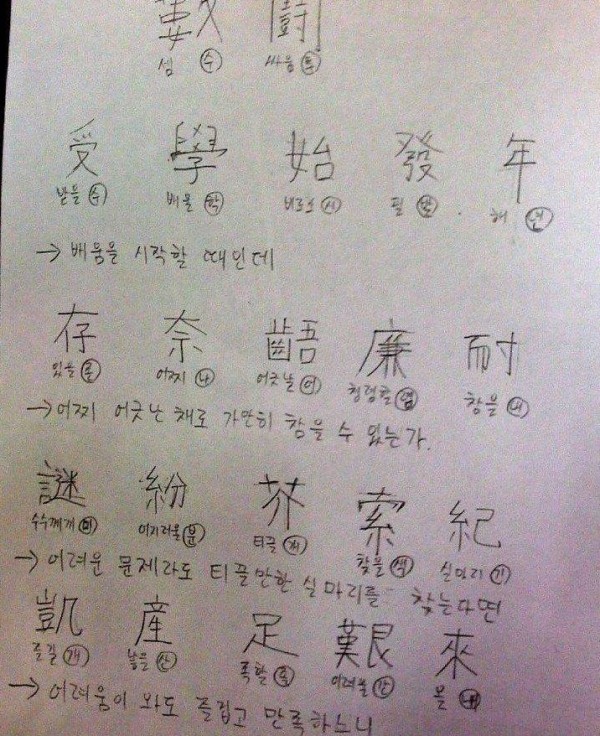 數 鬪
셈 수 싸움 투
受 學 始 發 年
받을 수 배울 학 비로소 시 필 발 해 년
→ 배움을 시작할 때인데
存 奈 齬 廉 耐
있을 존 어찌 나 어긋날 어 청렴할 염 참을 내
→ 어찌 어긋난 채로 가만히 참을 수 있는가.
謎 紛 芥 索 紀
수수께끼 미 어지러울 분 티끌 개 찾을 색 실마리 기
→ 어려운 문제라도 티끌만한 실마리를 찾는다면
凱 産 足 艱 來
즐길 개 낳을 산 족할 족 어려울 간 올 내
→ 어려움이 와도 즐겁고 만족하느니